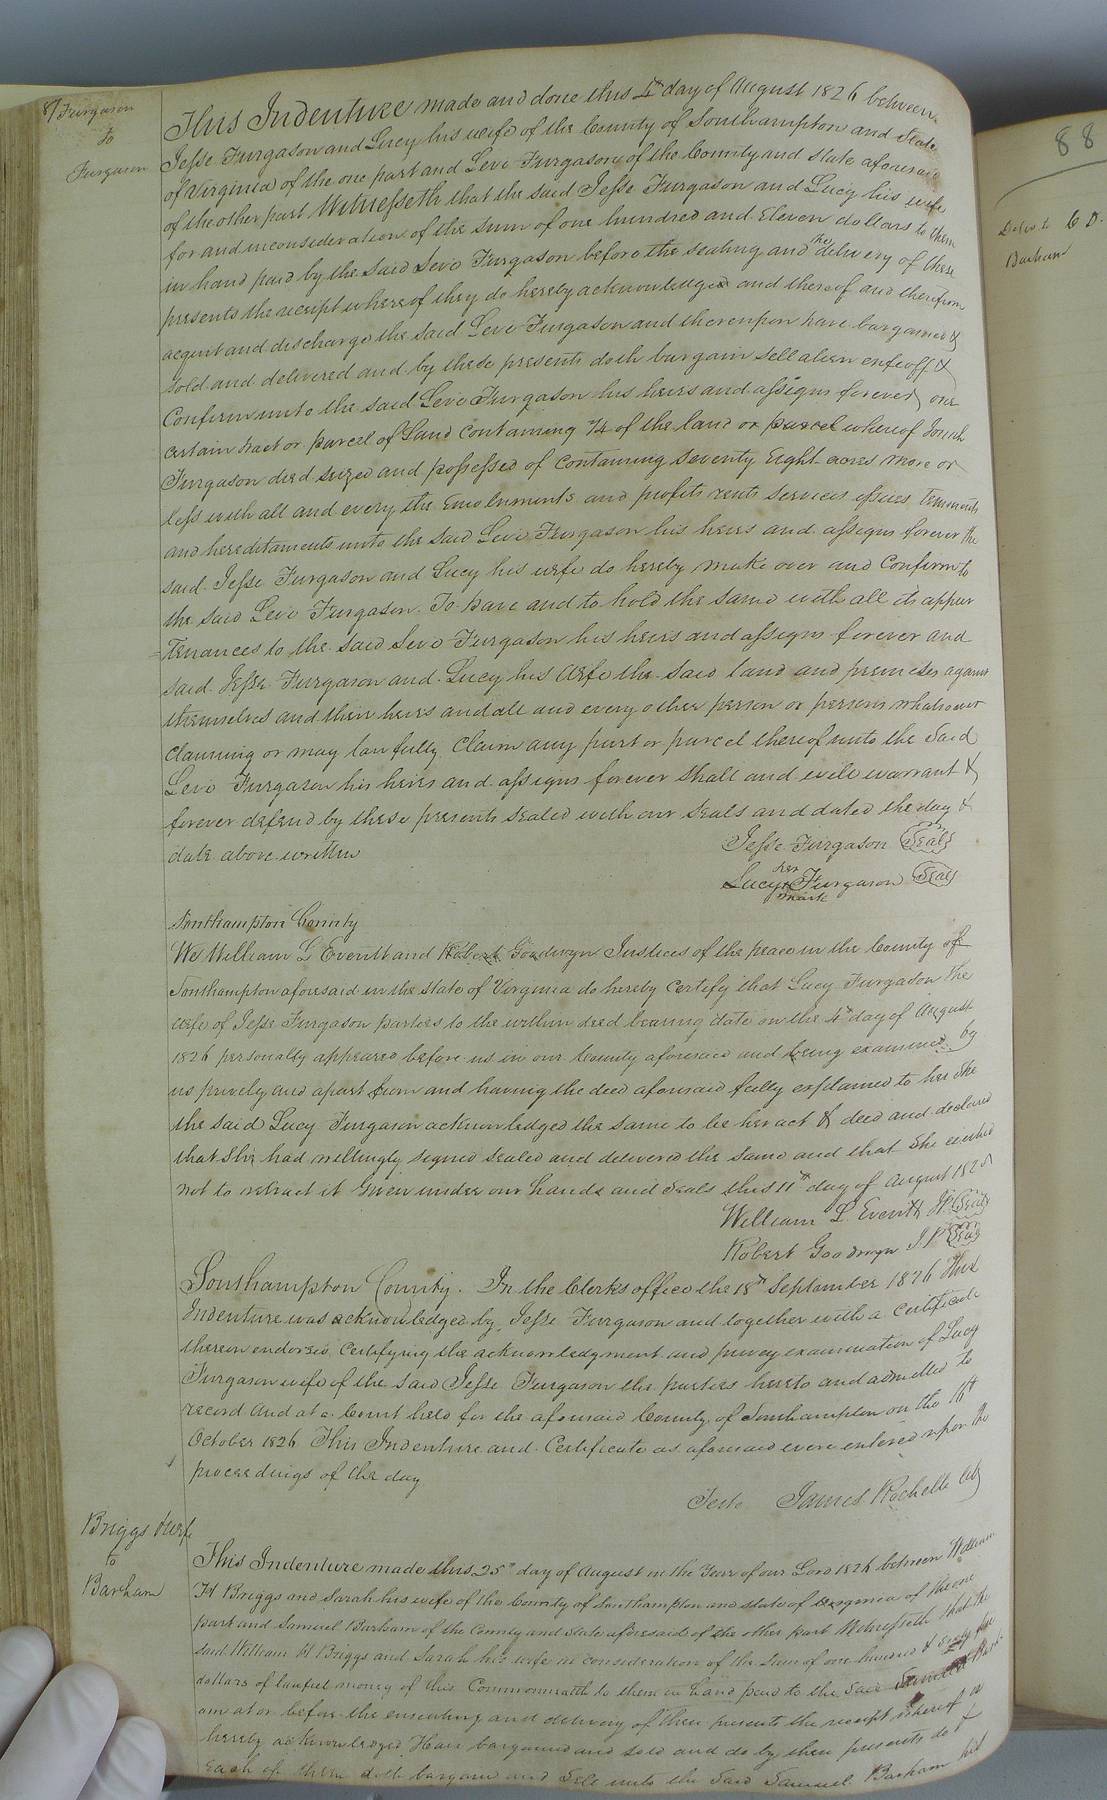 87 Furgason
to
Furgason
This Indenture made and done this 4th day of August 1826 between
Jesse Furgason and Lucy his wife of the County of Southampton and State
of Virginia of the one part and Levi Furgason of the County and state aforesaid
of the other part Witnesseth that the said Jesse Furgason and Lucy his wife
for and inconsideration of the sum of one hundred and Eleven dollars to them
in hand paid by the said Levi Furgason before the sealing and the delivery of these
presents the receipt whereof they do hereby acknowledge and thereof and therefrom
acquit and discharge the said Levi Furgason and thereupon have bargained &
sold and delivered and by these presents doth bargain sell alien enfeoff &
Confirm unto the said Levi Furgason his heirs and assigns forever one
certain tract or parcel of Land Containing 1/4 of the land or parcel whereof
Furgason died seized and possessed of Containing Seventy Eight acres more or
less with all and every the Emoluments and profits rents services issues Tenements
and hereditaments unto the said Levi Furgason his heirs and assigns forever the
said Jesse Furgason and Lucy his wife do hereby make over and Confirm to
the said Levi Furgason To have and to hold the same with all its appur
=Tenances to the said Levi Furgason his heirs and assigns forever and
said Jesse Furgason and Lucy his Wife the said land and premises against
themselves and their heirs and all and every other person or persons whatsoever
Claiming or may lawfully Claim any part or parcel thereof unto the Said
Levi Furgason his heirs and assigns forever shall and will warrant &
forever defend by these presents sealed with our Seals and dated the day &
date above written
Jesse Furgason Seal
her
Lucy x Furgason Seal
mark
Southampton County
We William L Everitt and Robert Goodwyn Justices of the peace in the County of
Southampton aforesaid in the State of Virginia do hereby Certify that Lucy Furgason the
wife of Jesse Furgason parties to the within deed bearing date on the 4th day of August
1826 personally appeared before us in our County aforesaid and being examined by
us privily and apart from and having the deed aforesaid fully explained to her She
the said Lucy Furgason acknowledged the same to be her act & deed and declared
that She had willingly signed sealed and delivered the same and that She wished
not to retract it Given under our hands and Seals this 11th day of August 182
William L. Everitt JP Seal
Robert Goodwyn J.P Seal
Southampton County. In the Clerks office the 18th September 1826 This
Indenture was acknowledged by Jesse Furgason and together with a Certificate
thereon endorsed Certifying the acknowledgment and privy examination of Lucy
Furgason wife of the said Jesse Furgason the parties hereto and admitted to
record And at a Court held for the aforesaid County of Southampton on the 16th
October 1826 This Indenture and Certificate as aforesaid were entered upon the
proceedings of the day
Teste James Rochelle
Briggs & wife
to
Barham
This Indenture made this 25th day of August in the Year of our Lord 1826 between William
H Briggs and Sarah his wife of the County of Southampton and state of Virginia of the one
part and Samuel Barham of the County and State aforesaid of the other part Witnesseth that the
said William H Briggs and Sarah his wife in consideration of the Sum of one hundred & Sixty five
dollars of lawful money of this Commonwealth to them in hand paid to the said Samuel Barh
am at or before the ensealing and delivery of these presents the receipt whereof is
hereby acknowledged Have bargained and sold and do by these presents do &
Each of them doth bargain and Sell unto the Said Samuel Barham his
88
Barham